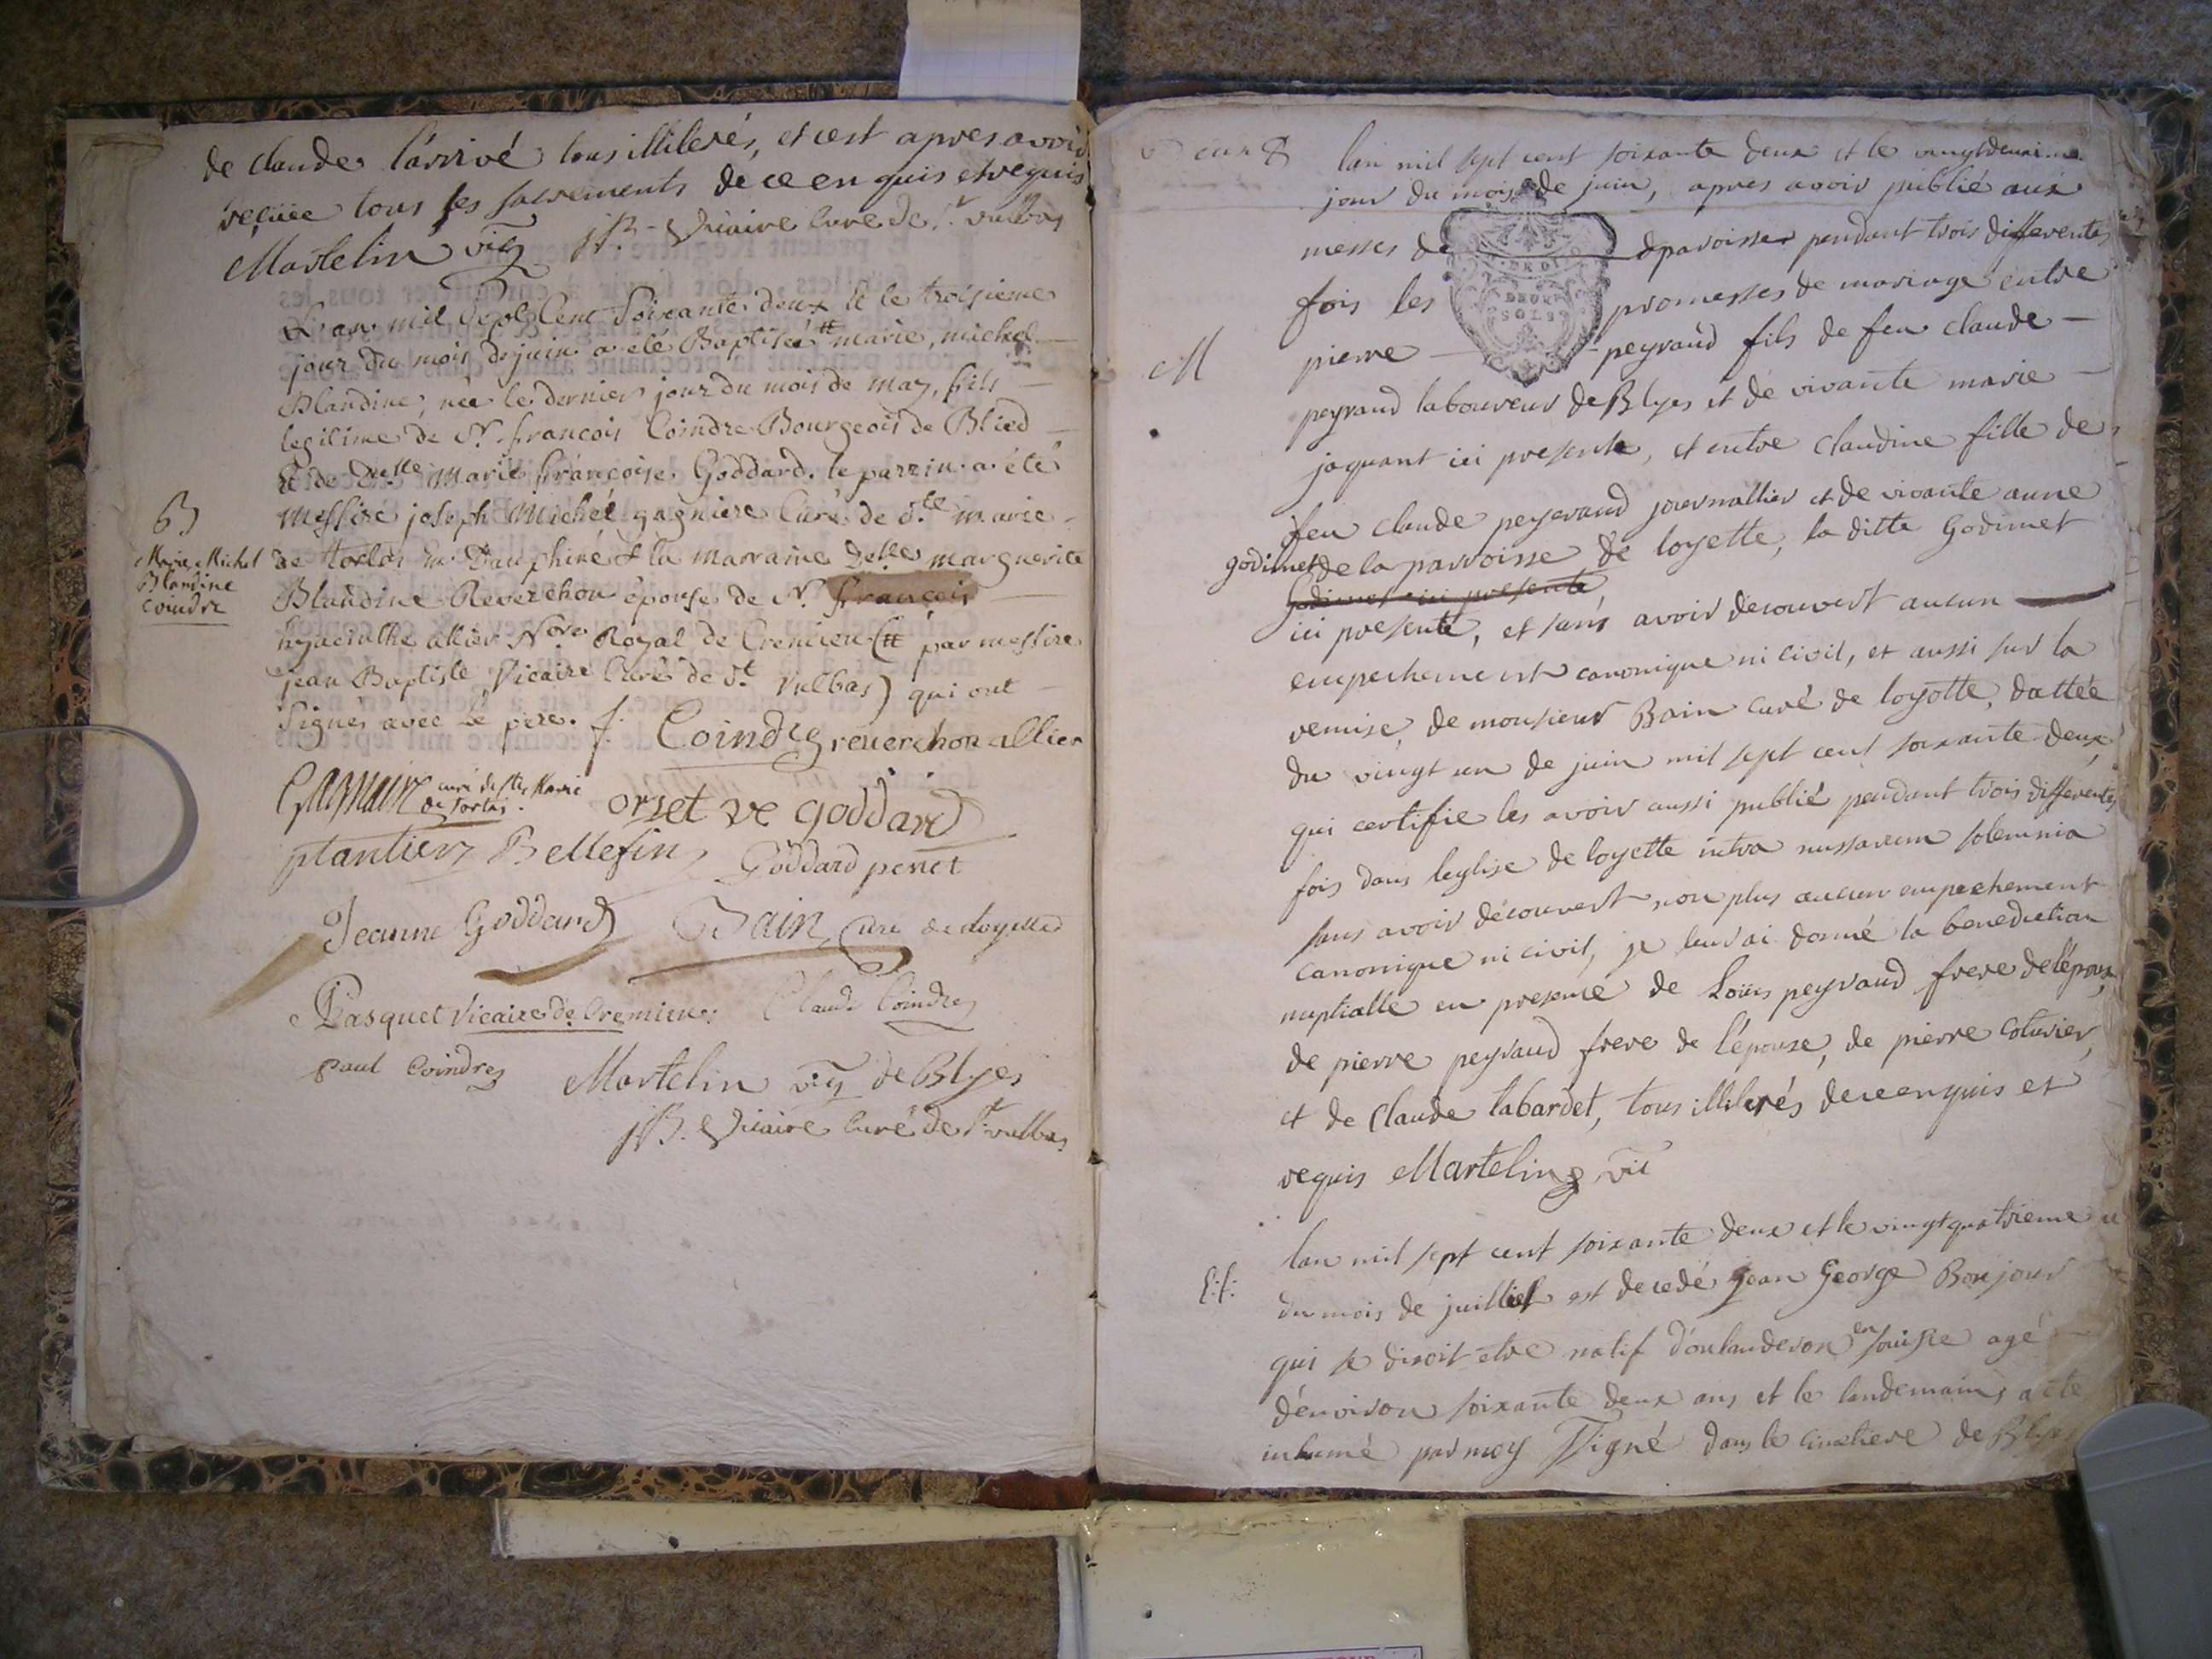 de claude l'arrivé tous illiterés, et c'est apres avoir
reçüe tous les sacrements de ce enquis et requis
Martelin vic̃ J B. Vicaire Curé de St. vulbas
L'an mil sept Cent Soixante deux et le troisieme
jour du mois de juin a été Baptisée # marie, michel
Blandine, née le dernier jour du mois de may, fils
legitime de Sr. françois Coindre Bourgeois de Blied
et de Delle Marie françoise Goddard. le parrin a été
Messire joseph Michel gagniere Curé de Ste marie
de tortas en Dauphiné & la marraine Delle marguerite
Blandine Reverchon épouse de Sr. françois
hyacinthe allier Nore Royal de Cremieu (# par messire
jean Baptiste Vicaire Curé de St Vulbas) qui ont
Signés avec Le pere. f. Coindre g reverchon allier
B
Marie Michel
Blandine
Coindre
curé de Ste Marie
de tortas.
orset ve Goddard
plantier Bellefin
Goddard perret
Jeanne Goddard Bain Curé de Loyette
Pasquet Vicaire de Cremieu. Claude Coindre
Paul Coindre Martelin vic̃ de Blyes
J B. Vicaire Curé de St. vulbas
Deux
lan mil sept cent soixante deux et le vingtdeuxime
jour du mois de juin, apres avoir publié aux
messes de paroisse pendant trois differentes
DEUX
SOLS
fois les promesses de mariage entre
M
pierre peyraud fils de feu claude
peyraud laboureur de Blyes et de vivante marie
jaquant ici presente, et entre claudine fille de
feu claude peyeraud journallier et de vivante anne
godimet de la parroisse de loyette, la ditte Godimet
Godimet ici presente,
ici presente, et sans avoir decouvert aucun
empechement canonique ni civil, et aussi sur la
remise de monsieur Bain curé de loyette, dattée
du vingt un de juin mil sept cent soixante deux,
qui certifie les avoir aussi publié pendant trois differentes
fois dans leglise de loyette intra missarum solemnia
sans avoir découvert non plus aucun empechement
canonique ni civil, je leur ai donné la benediction
nuptialle en presence de Loüis peyraud frere de l'époux,
de pierre peyraud frere de l'épouse, de pierre Coturier,
et de Claude tabardet, tous illiterés de ce enquis et
requis Martelin vic̃
lan mil sept cent soixante deux et le vingtquatrieme
du mois de juilliet est decedé jean George Bonjour
qui se disoit etre natif d'oulanderon en suisse agé
d'environ soixante deux ans et le landemain a été
inhumé par moy signé dans le cimetiere de Blyes